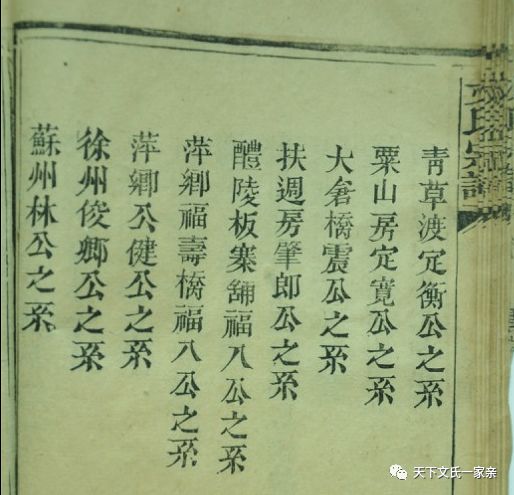 青草渡定衡公之系
粟山房定寬公之系
大倉橋震公之系
扶週房肇郎公之系
醴陵板寨舖福八公之系
萍鄉福壽橋福八公之系
萍鄉公健公之系
徐州俊卿公之系
蘇州林公之系
天下文氏一家亲